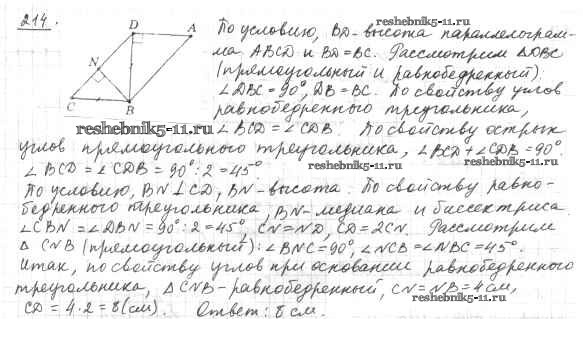 214.
reshebnik5-11.ru
D A
N
C B
reshebnik5-11.ru
По условию, BD-высота параллелограм-
ма ABCD и BD=BC. Рассмотрим △DBC
(прямоугольный и равнобедренный):
∠DBC = 90°, DB = BC. По свойству углов
равнобедренного треугольника,
∠BCD = ∠CDB. По свойству острых
углов прямоугольного треугольника, ∠BCD + ∠CDB = 90°.
∠BCD = ∠CDB = 90° : 2 = 45°. reshebnik5-11.ru
По условию, BN ⊥ CD, BN - высота. По свойству равно-
бедренного треугольника, BN - медиана и биссектриса.
∠CBN = ∠DBN = 90° : 2 = 45°, CN = ND, CD = 2CN. Рассмотрим
△ CNB (прямоугольный): ∠BNC = 90°, ∠NCB = ∠NBC = 45°.
Итак, по свойству углов при основании равнобедренного
треугольника, △CNB - равнобедренный, CN = NB = 4 см,
CD = 4·2 = 8 (см). Ответ: 8 см. reshebnik5-11.ru